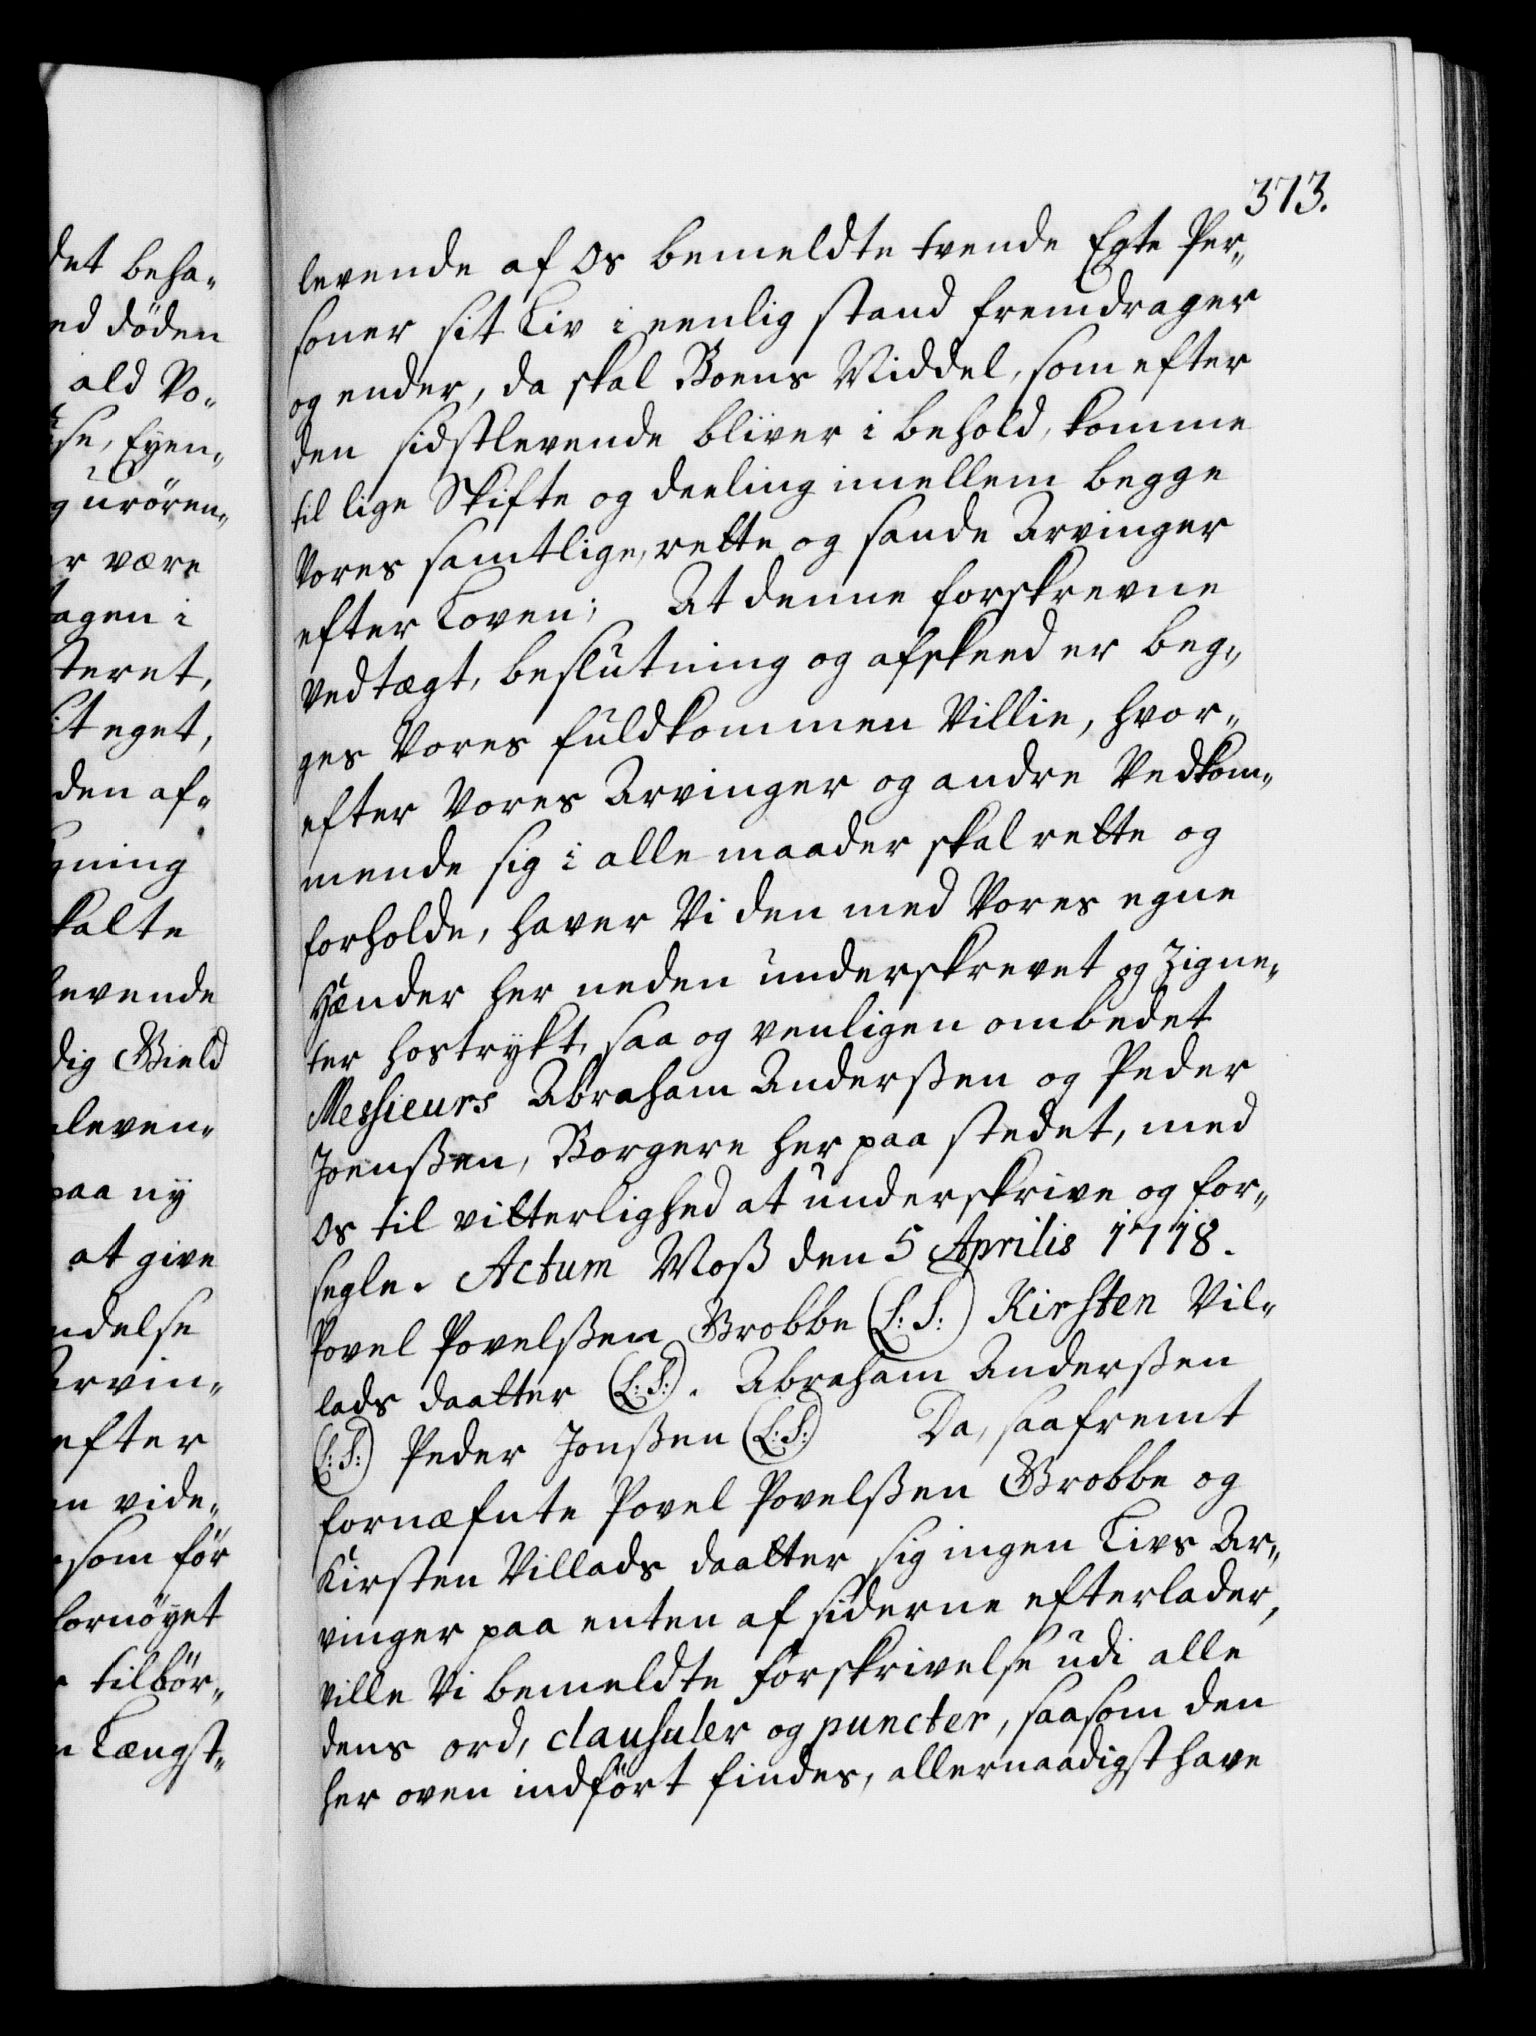 373.
det beha-
ed döden
ald Vo-
se, Eyen-
g urören-
r være
tagen i
teret,
it eget,
den af-
gning
kalte
levende
dig Gield
leven-
paa ny
at give
ndelse
Arvin-
efter
en vide-
som för
fornöyet
tilbör-
Længst-
levende af Os bemeldte tvende Egte Per-
soner sit Liv i eenlig stand fremdrager
og ender, da skal Boens Middel, som efter
den sidstlevende bliver i behold, komme
til lige Skifte og deeling imellem begge
Vores samtlige, rette og sande Arvinger
efter Loven; At denne forskrevne
vedtægt, beslutning og afskeed er beg-
ges Vores fuldkommen Villie, hvor-
efter Vores Arvinger og andre Vedkom-
mende sig i alle maader skal rette og
forholde, haver Vi den med Vores egne
Hænder her neden underskrevet og Zigne-
ter hostrykt, saa og venligen ombedet
Messieurs Abraham Anderßen og Peder
Joenßen, Borgere her paa stedet, med
Os til vitterlighed at underskrive og for-
segle. Actum Moß den 5 Aprilis 1718.
Povel Povelßen Brobbe (L: S:) Kirsten Vil-
lads daatter (L: S:). Abraham Anderßen
(L: S:) Peder Jonßen (L: S:) Da, saafremt
fornæfnte Povel Povelßen Brobbe og
Kirsten Villads daatter sig ingen Livs Ar-
vinger paa enten af siderne efterlader,
ville Vi bemeldte forskrivelse udi alle
dens ord, clausuler og puncter, saasom den
her oven indfört findes, allernaadigst have